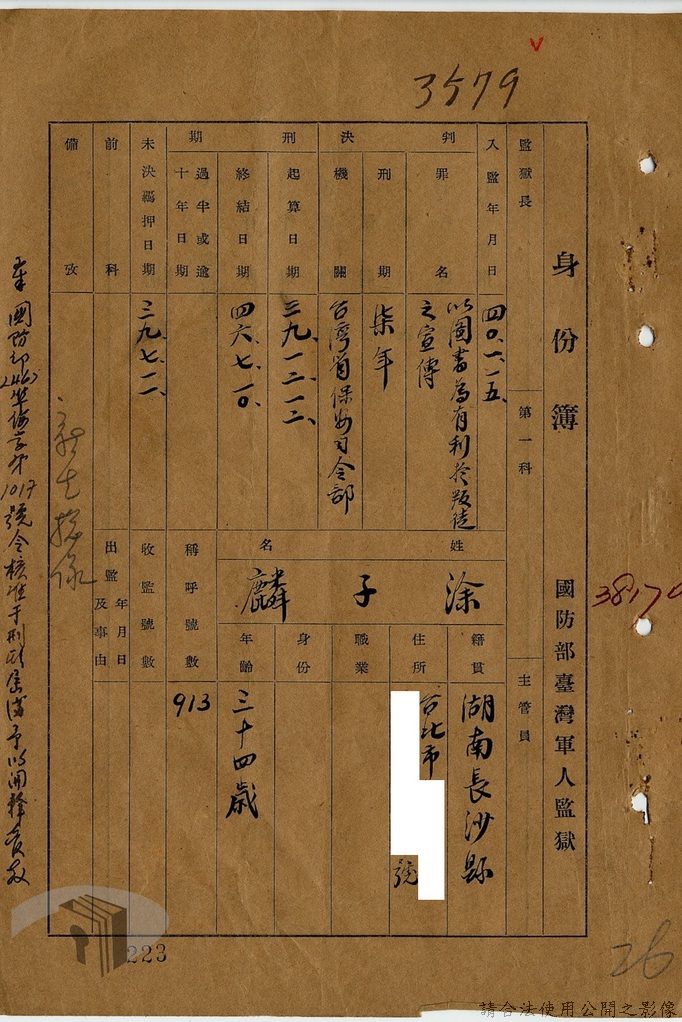 3579
身份簿
國防部臺灣軍人監獄
38170
監獄長
第一科
主管員
入監年月日
四〇、一、一五、
判決
罪名
以圖書為有利於叛徒之宣傳
刑期
柒年
機關
台灣省保安司令部
刑期
起算日期
三九、一二、一二、
終結日期
四六、七、一〇、
過半或逾十年日期
未決羈押日期
三九、七、一一、
前科
備攷
姓名
涂子麟
籍貫
湖南長沙縣
住所
台北市
號
職業
身份
年齡
三十四歲
稱呼號數
913
收監號數
出監年月日及事由
奉國防部
號令核准于刑期屆滿予以開釋
223
26
請合法使用公開之影像